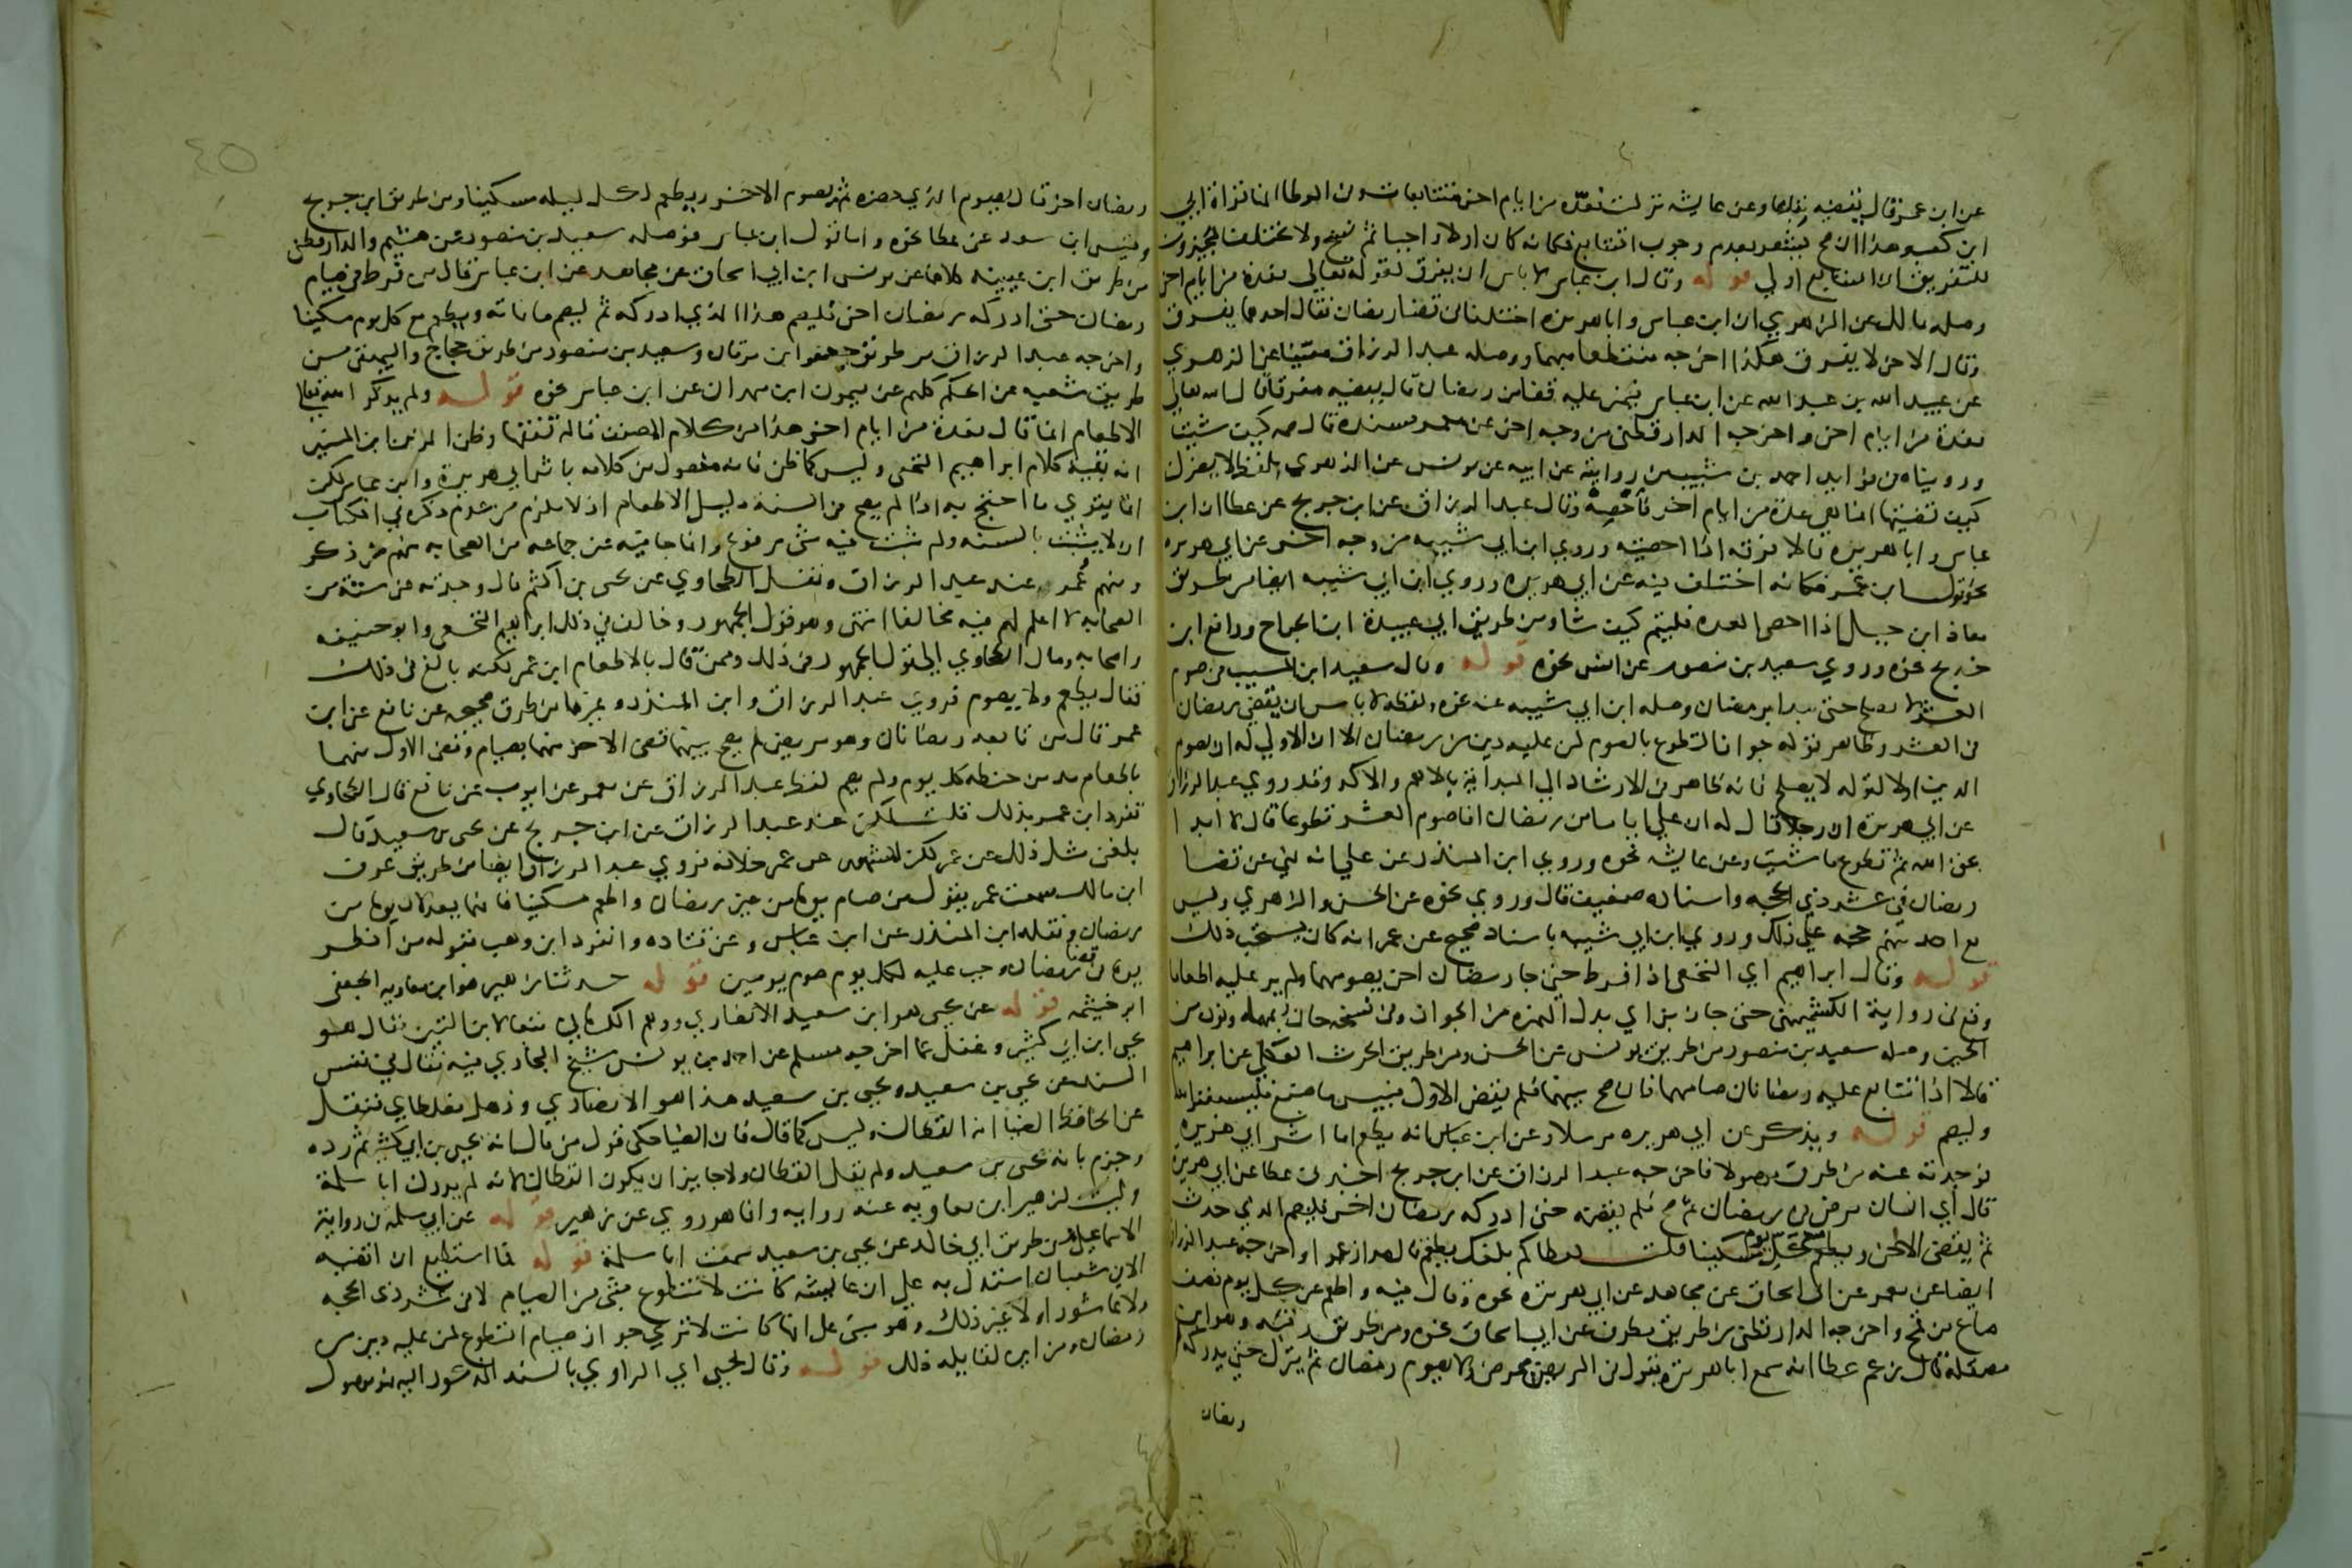 عن ابن عمر قال يقضيه تباعا وعن عايشه نزلت فعدة من ايام اخر متتابعات وفي الموطا انها قراة ابي
ابن كعب وهذا ان صح يشعر بعدم وجوب التتابع فكانه كان اولا واجبا ثم نسخ ولا يختلف المجيزون
للتفريق ان التتابع اولي قوله وقال ابن عباس لا باس ان يفرق لقوله تعالي فعدة من ايام اخر
وصله مالك عن الزهري ان ابن عباس وابا هريره اختلفا في قضا رمضان فقال احدهما يفرق
وقال الاخر لا يفرق هكذا اخرجه منقطعا مبهما ووصله عبد الرزاق معينا عن الزهري
عن عبيد الله بن عبد الله عن ابن عباس فيمن عليه قضا من رمضان قال يقضيه مفرقا قال الله تعالي
فعدة من ايام اخر واخرجه الدارقطني من وجه اخر عن معمر بسنده قال صمه كيف شيت
ورويناه في فوايد احمد بن شبيب من روايته عن ابيه عن يونس عن الزهري بلفظ لا يضرك
كيف قضيتها انما هي عدة من ايام اخر فاحصه وقال عبد الرزاق عن ابن جريج عن عطا ان ابن
عباس وابا هريره قالا فرقه اذا احصيته وروي ابن ابي شيبه من وجه اخر عن ابي هريره
نحو قول ابن عمر فكانه اختلف فيه عن ابي هريره وروي ابن ابي شيبه ايضا من طريق
معاذ ابن جبل اذا احصي العده فليصم كيف شا ومن طريق ابي عبيدة ابن الجراح ورافع ابن
خديج نحوه وروي سعيد بن منصور عن انس نحوه قوله وقال سعيد ابن المسيب في صوم
العشر لا يصلح حتي يبدا برمضان وصله ابن ابي شيبه عنه نحوه ولفظه لا باس ان يقضي رمضان
في العشر وظاهر قوله جواز التطوع بالصوم لمن عليه دين من رمضان الا ان الاولي له ان يصوم
الدين اولا لقوله لا يصلح فانه ظاهر في الارشاد الي البداية بالاهم والاكد وقد روي عبد الرزاق
عن ابي هريرة ان رجلا قال له ان علي اياما من رمضان افاصوم العشر تطوعا قال لا ابدا
بحق الله ثم تطوع ما شيت وعن عايشه نحوه وروي ابن المنذر عن علي انه نهي عن قضا
رمضان في عشر ذي الحجه واسناده ضعيف قال وروي نحوه عن الحسن والزهري وليس
مع احد منهم حجه علي ذلك وروي ابن ابي شيبه باسناد صحيح عن عمر انه كان يستحب ذلك
قوله وقال ابراهيم اي النخعي اذا فرط حتي جا رمضان اخر يصومهما ولم ير عليه اطعاما
وقع في رواية الكشميهني حتي جاز بزاي بدل الهمزه من الجواز وفي نسخه حان بمهمله ونون من
الحين وصله سعيد بن منصور من طريق يونس عن الحسن ومن طريق الحرث العكلي عن ابراهيم
قالا اذا تتابع عليه رمضانان صامهما فان صح بينهما فلم يقض الاول فبيس ما صنع فليستغفر الله
وليصم قوله ويذكر عن ابي هريره مرسلا وعن ابن عباس انه يطعم اما اثر ابي هريرة
فوجدته عنه من طرق موصولا فاخرجه عبد الرزاق عن ابن جريج اخبرني عطا عن ابي هريرة
قال اي انسان مرض في رمضان ثم صح فلم يقضه حتي ادركه رمضان اخر فليصم الذي حدث
ثم يقضي الاخر ويطعم مع كل يوم مسكينا قلت لعطا كم بلغك يطعم قال مدا زعموا واخرجه عبد الرزاق
ايضا عن معمر عن ابي اسحاق عن مجاهد عن ابي هريرة نحوه وقال فيه واطعم عن كل يوم نصف
صاع من قمح واخرجه الدارقطني من طريق مطرف عن ابي اسحاق نحوه ومن طريق رقبه وهو ابن
مصقلة قال زعم عطا انه سمع ابا هريرة يقول في المريض يمرض ولا يصوم رمضان ثم يترك حتي يدركه
رمضان
رمضان اخر قال يصوم الذي حضره ثم يصوم الاخر ويطعم لكل ليله مسكينا ومن طريق ابن جريج
وقيس ابن سعد عن عطا نحوه واما قول ابن عباس فوصله سعيد بن منصور عن هشيم والدارقطني
من طريق ابن عيينه كلاهما عن يونس ابن ابي اسحاق عن مجاهد عن ابن عباس قال من فرط في صيام
رمضان حتي ادركه رمضان اخر فليصم هذا الذي ادركه ثم ليصم ما فاته ويطعم مع كل يوم مسكينا
واخرجه عبد الرزاق من طريق جعفر ابن برقان وسعيد بن منصور من طريق حجاج والبيهقي من
طريق شعبه عن الحكم كلهم عن ميمون ابن مهران عن ابن عباس نحوه قوله ولم يذكر الله تعالي
الاطعام انما قال فعدة من ايام اخر هذا من كلام المصنف قاله تفقها وظن الزين ابن المنير
انه بقية كلام ابراهيم النخعي وليس كما ظن فانه مفصول من كلامه باثر ابي هريرة وابن عباس لكن
انما يقوي ما احتج به اذا لم يصح في السنة دليل الاطعام اذ لا يلزم من عدم ذكره في الكتاب
ان لا يثبت بالسنه ولم يثبت فيه شي مرفوع وانما جا فيه عن جماعه من الصحابه منهم من ذكر
ومنهم عمر عند عبد الرزاق ونقل الطحاوي عن يحيي بن اكثم قال وجدته عن سته من
الصحابه لا اعلم لهم فيه مخالفا انتهي وهو قول الجمهور وخالف في ذلك ابراهيم النخعي وابو حنيفه
واصحابه ومال الطحاوي الي قول الجمهور في ذلك وممن قال بالاطعام ابن عمر لكنه بالغ في ذلك
فقال يطعم ولا يصوم فروي عبد الرزاق وابن المنذر وغيرهما من طرق صحيحه عن نافع عن ابن
عمر قال من تابعه رمضانان وهو مريض لم يصح بينهما قضي الاخر منهما بصيام وقضي الاول منهما
باطعام مد من حنطه كل يوم ولم يصم لفظ عبد الرزاق عن معمر عن ايوب عن نافع قال الطحاوي
تفرد ابن عمر بذلك قلت لكن عند عبد الرزاق عن ابن جريج عن يحيي بن سعيد قال
بلغني مثل ذلك عن عمر لكن المشهور عن عمر خلافه فروي عبد الرزاق ايضا من طريق عوف
ابن مالك سمعت عمر يقول من صام يوما من غير رمضان واطعم مسكينا فانهما يعدلان يوما من
رمضان ونقله ابن المنذر عن ابن عباس وعن قتاده وانفرد ابن وهب بقوله من افطر
يوما في قضا رمضان وجب عليه لكل يوم صوم يومين قوله حدثنا زهير هو ابن معاويه الجعفي
ابو خيثمه قوله عن يحيي هو ابن سعيد الانصاري ووهم الكرماني تبعا لابن التين فقال هو
يحيي ابن ابي كثير وغفل عما اخرجه مسلم عن احمد بن يونس شيخ البخاري فيه فقال في نفس
السند عن يحيي بن سعيد ويحيي بن سعيد هذا هو الانصاري وذهل مغلطاي فنقل
عن الحافظ الضيا انه القطان وليس كما قال فان الضيا حكي قول من قال انه يحيي بن ابي كثير ثم رده
وجزم بانه يحيي بن سعيد ولم يقل القطان ولا جايز ان يكون القطان لانه لم يدرك ابا سلمة
وليست لزهير ابن معاويه عنه روايه وانما هو روي عن زهير قوله عن ابي سلمه في رواية
الاسماعيلي من طريق ابي خالد عن يحيي بن سعيد سمعت ابا سلمة قوله فما استطيع ان اقضيه
الا في شعبان استدل به علي ان عايشه كانت لا تتطوع بشي من الصيام لا في عشر ذي الحجه
ولا عاشورا ولا غير ذلك وهو مبني علي انها كانت لا تري جواز صيام التطوع لمن عليه دين من
رمضان ومن اين لقايله ذلك قوله وقال يحيي اي الراوي بالسند المذكور اليه فهو موصول